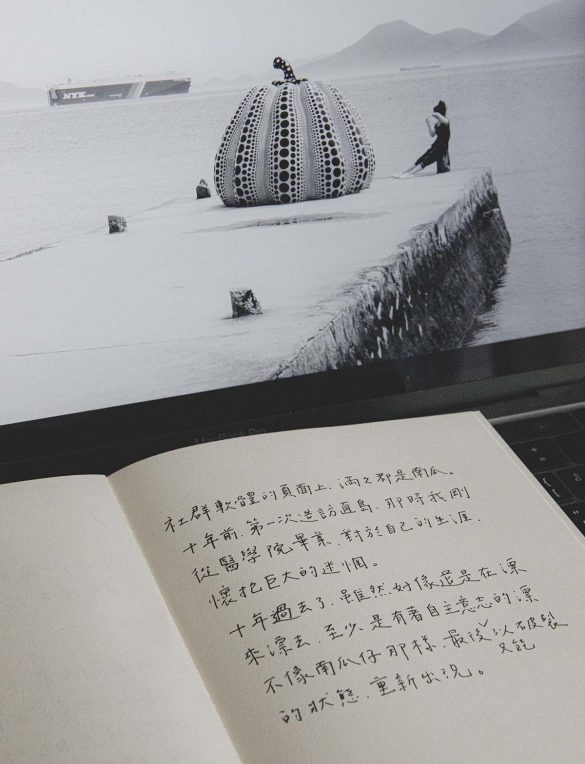 NYK LINE
MacBook Pro
社群軟體的頁面上,滿滿都是南瓜。
十年前,第一次造訪直島,那時我剛
從醫學院畢業,對於自己的生涯,
懷抱巨大的迷惘。
十年過去了,雖然好像還是在漂
來漂去,至少,是有著自主意志的漂
不像南瓜仔那樣,最後又能以破裂
的狀態,重新出現。